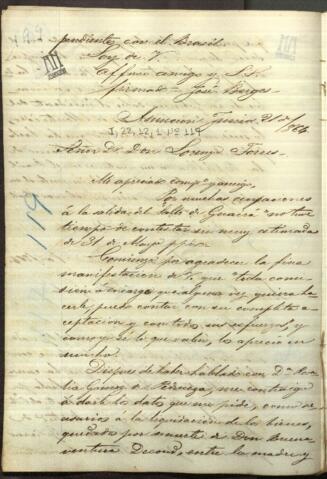 pendientes con el Brasil.
Soy de V.
Affmo amigo y S. S.
firmado – José Berges
Asuncion, Junio 21 de 1864
I, 22, 12, 1 Nº 119
Señor Dr Don Lorenzo Torres
Mi apreciado compº y amigo,
Por muchas ocupaciones
á la salida del Salto de Guairá no tuve
tiempo de contestar su muy estimada
de 21 de Mayo ppdo
Comienzo por agradecer la fina
manifestacion de V. que toda comi-
sion ó encargo que alguna vez quiera ha-
cerle, puedo contar con su completa a-
ceptacion y con todo su esfuerzo, y
como yo sé lo que valen, los aprecio en
mucho.
Despues de haber hablado con Dª
Gomez de Pedrueza, me contrage
á darle los datos que me pide, como ne-
cesarios á la liquidacion de los bienes,
quedados por muerte de Don Buena-
ventura Decoud, entre la madre y
119